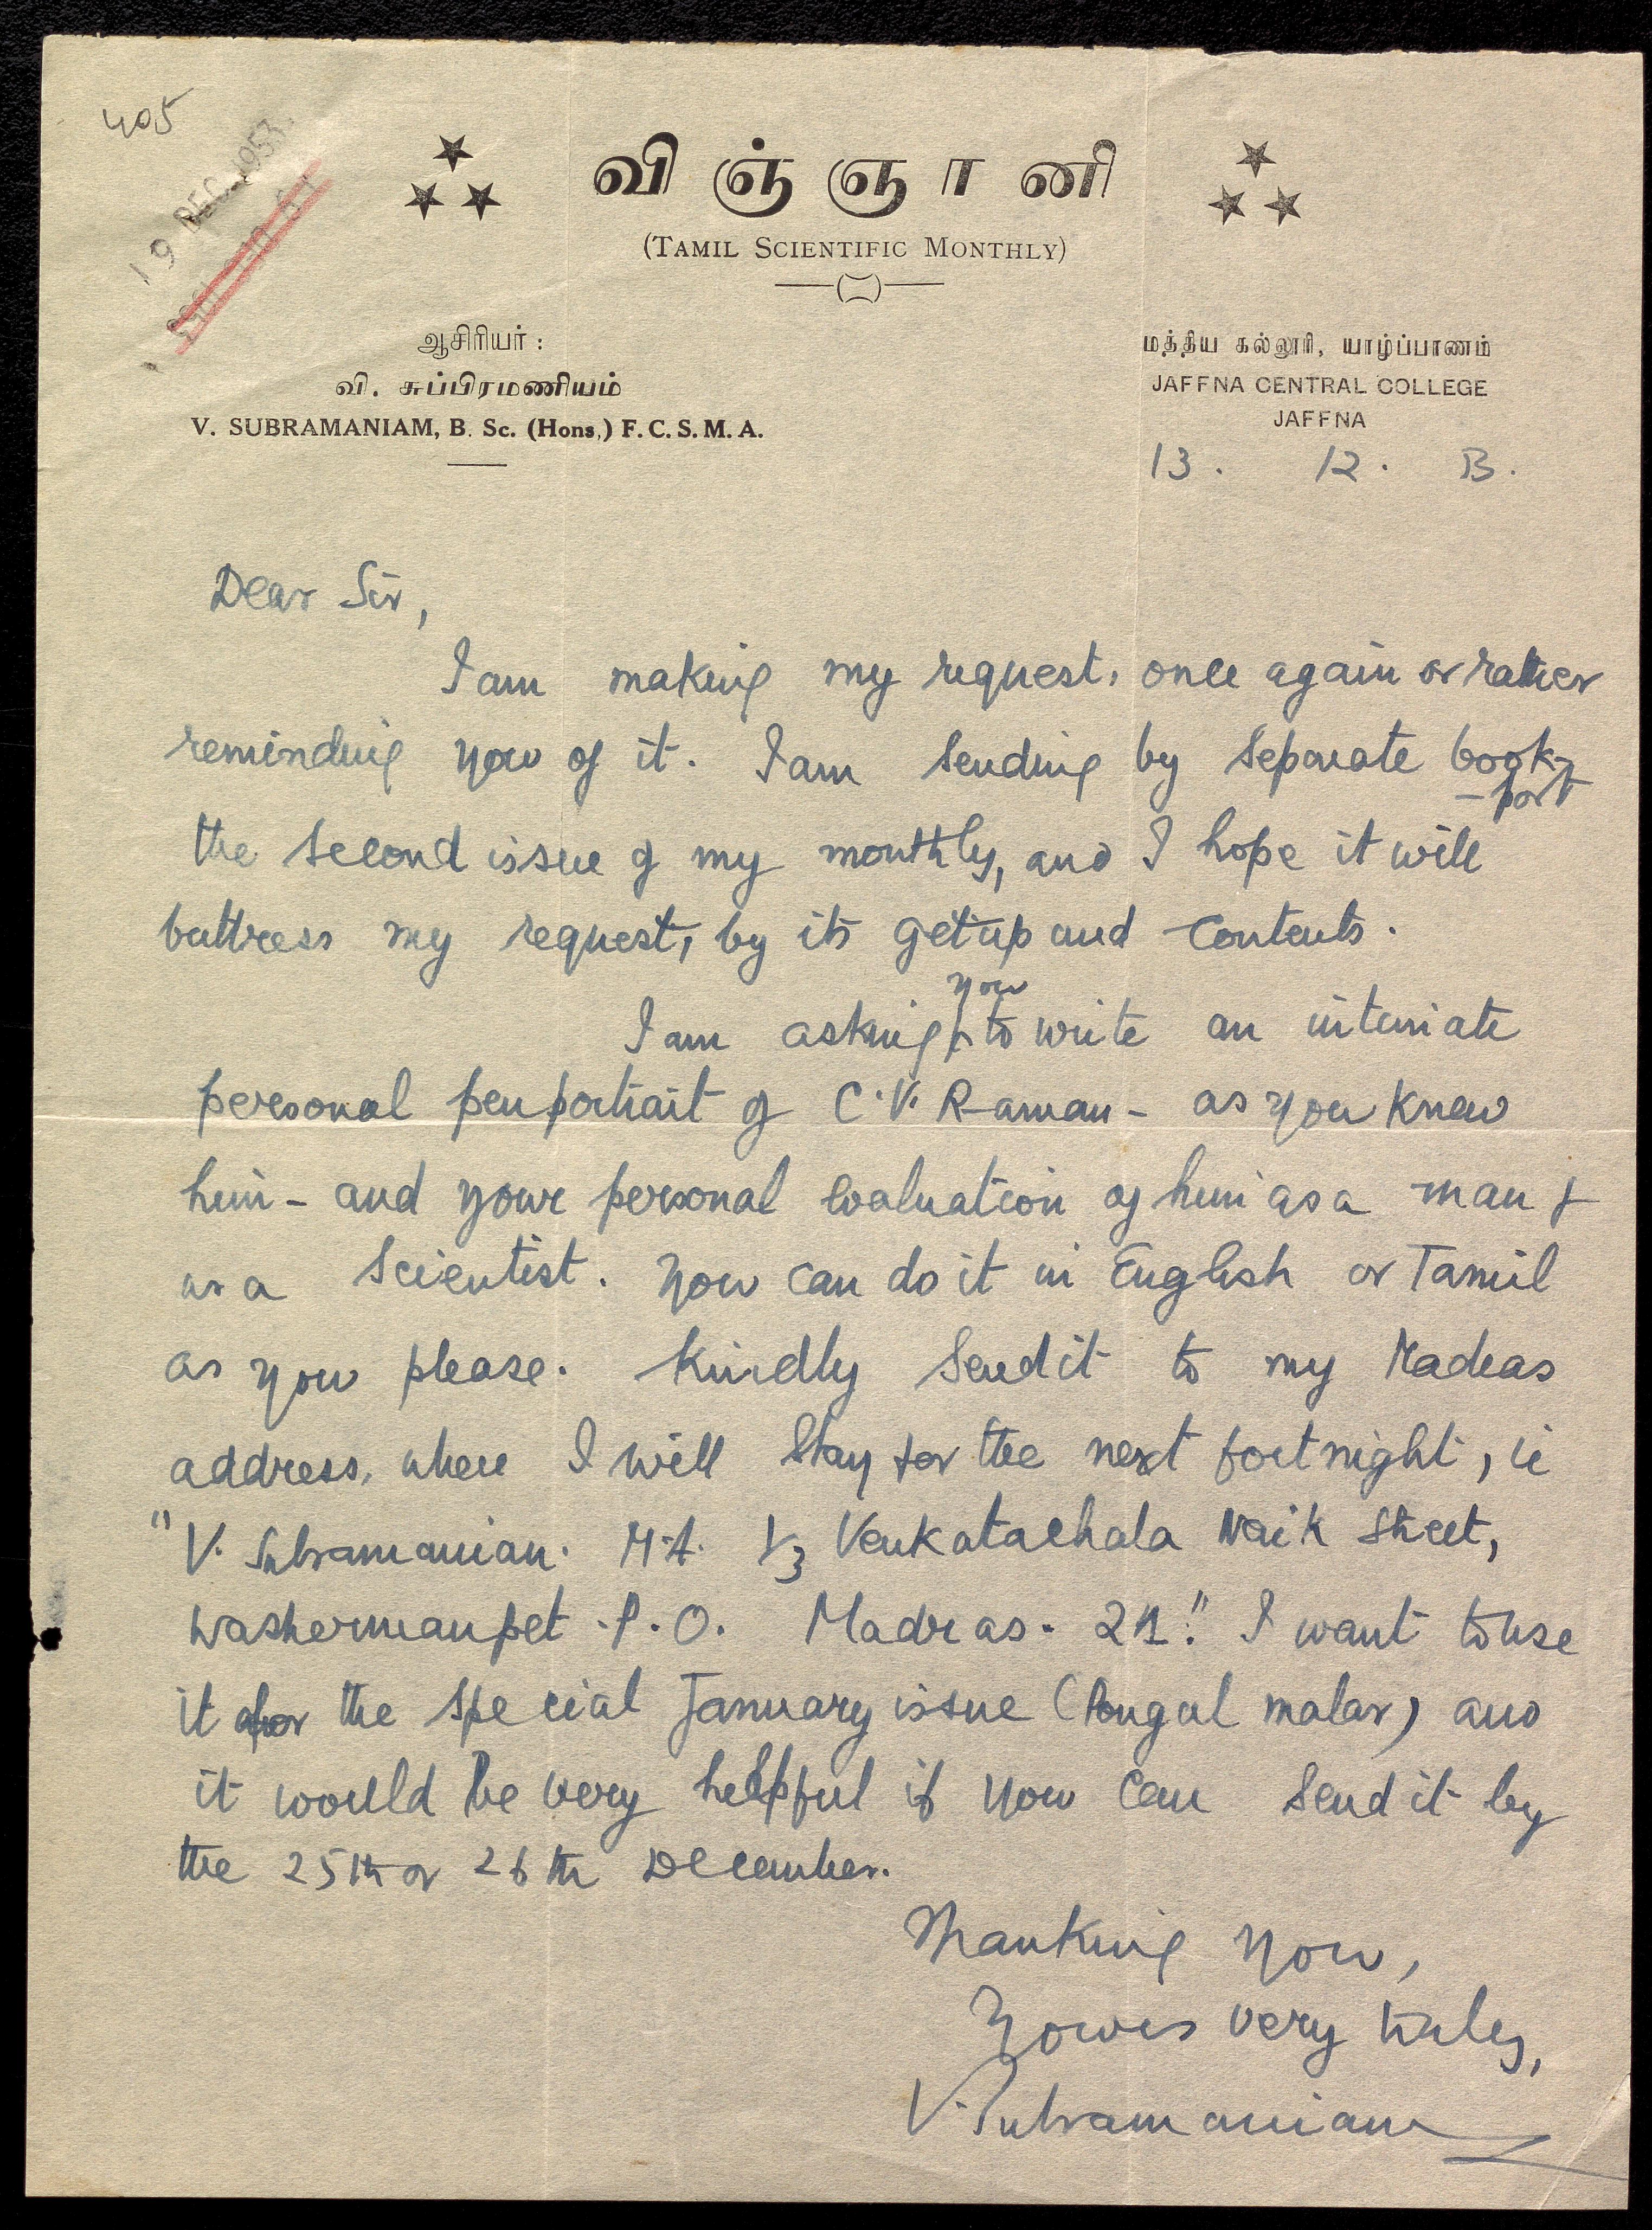 405
19 DEC 1953
விஞ்ஞானி
(TAMIL SCIENTIFIC MONTHLY)
ஆசிரியர் :
வி. சுப்பிரமணியம்
V. SUBRAMANIAM, B. Sc. (Hons,) F. C. S. M. A.
மத்திய கல்லூரி, யாழ்ப்பாணம்
JAFFNA CENTRAL COLLEGE
JAFFNA
13. 12.
Dear Sir,
I am making my request, once again or rather
reminding you of it. I am sending by separate book-
-post
the second issue of my monthly, and I hope it will
buttress my request, by its getup and contents.
you
I am asking to write an intimate
personal penportrait of C.V. Raman - as you know
him - and your personal evaluation of him as a man &
as a scientist. You can do it in English or Tamil
as you please. Kindly send it to my Madras
address, where I will stay for the next fortnight, ie
"V. Subramanian. M.A. Venkatachala Naik Street,
Washermanpet P.O. Madras - 21." I want to use
it for the special January issue (Pongal malar) and
it would be very helpful if you can send it by
the 25th or 26th December.
Thanking you,
Yours very truly,
V. Subramaniam